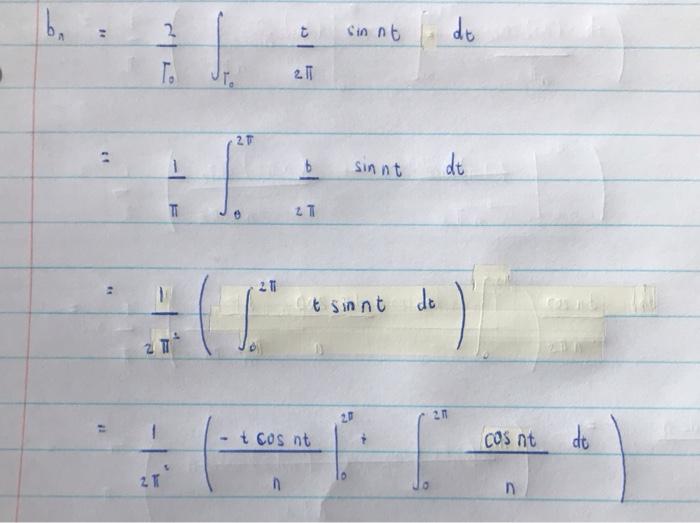 bₙ = 2/T₀ ∫_T₀ t/2π sin nt dt
= 1/π ∫₀^2π t/2π sin nt dt
= 1/2π² ( ∫₀^2π t sin nt dt )
= 1/2π² ( - t cos nt/n |₀^2π + ∫₀^2π cos nt/n dt )